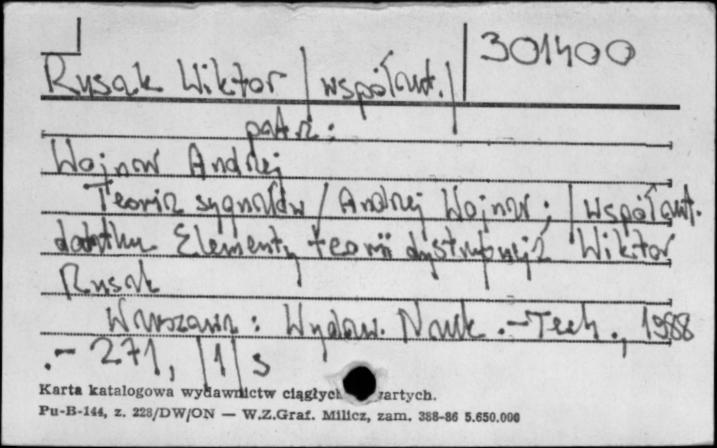 301400
Rusak Wiktor |współaut.|
patrz:
Wojnar Andrzej
Teoria sygnałów / Andrzej Wojnar ; |współaut.
dodatku Elementy teorii dystrybucji| Wiktor
Rusak
Warszawa : Wydaw. Nauk.-Tech., 1988
.- 271, |1| s
Karta katalogowa wydawnictw ciągłych zwartych.
Pu-B-144, z. 228/DW/ON — W.Z.Graf. Milicz, zam. 388-86 5.650.000